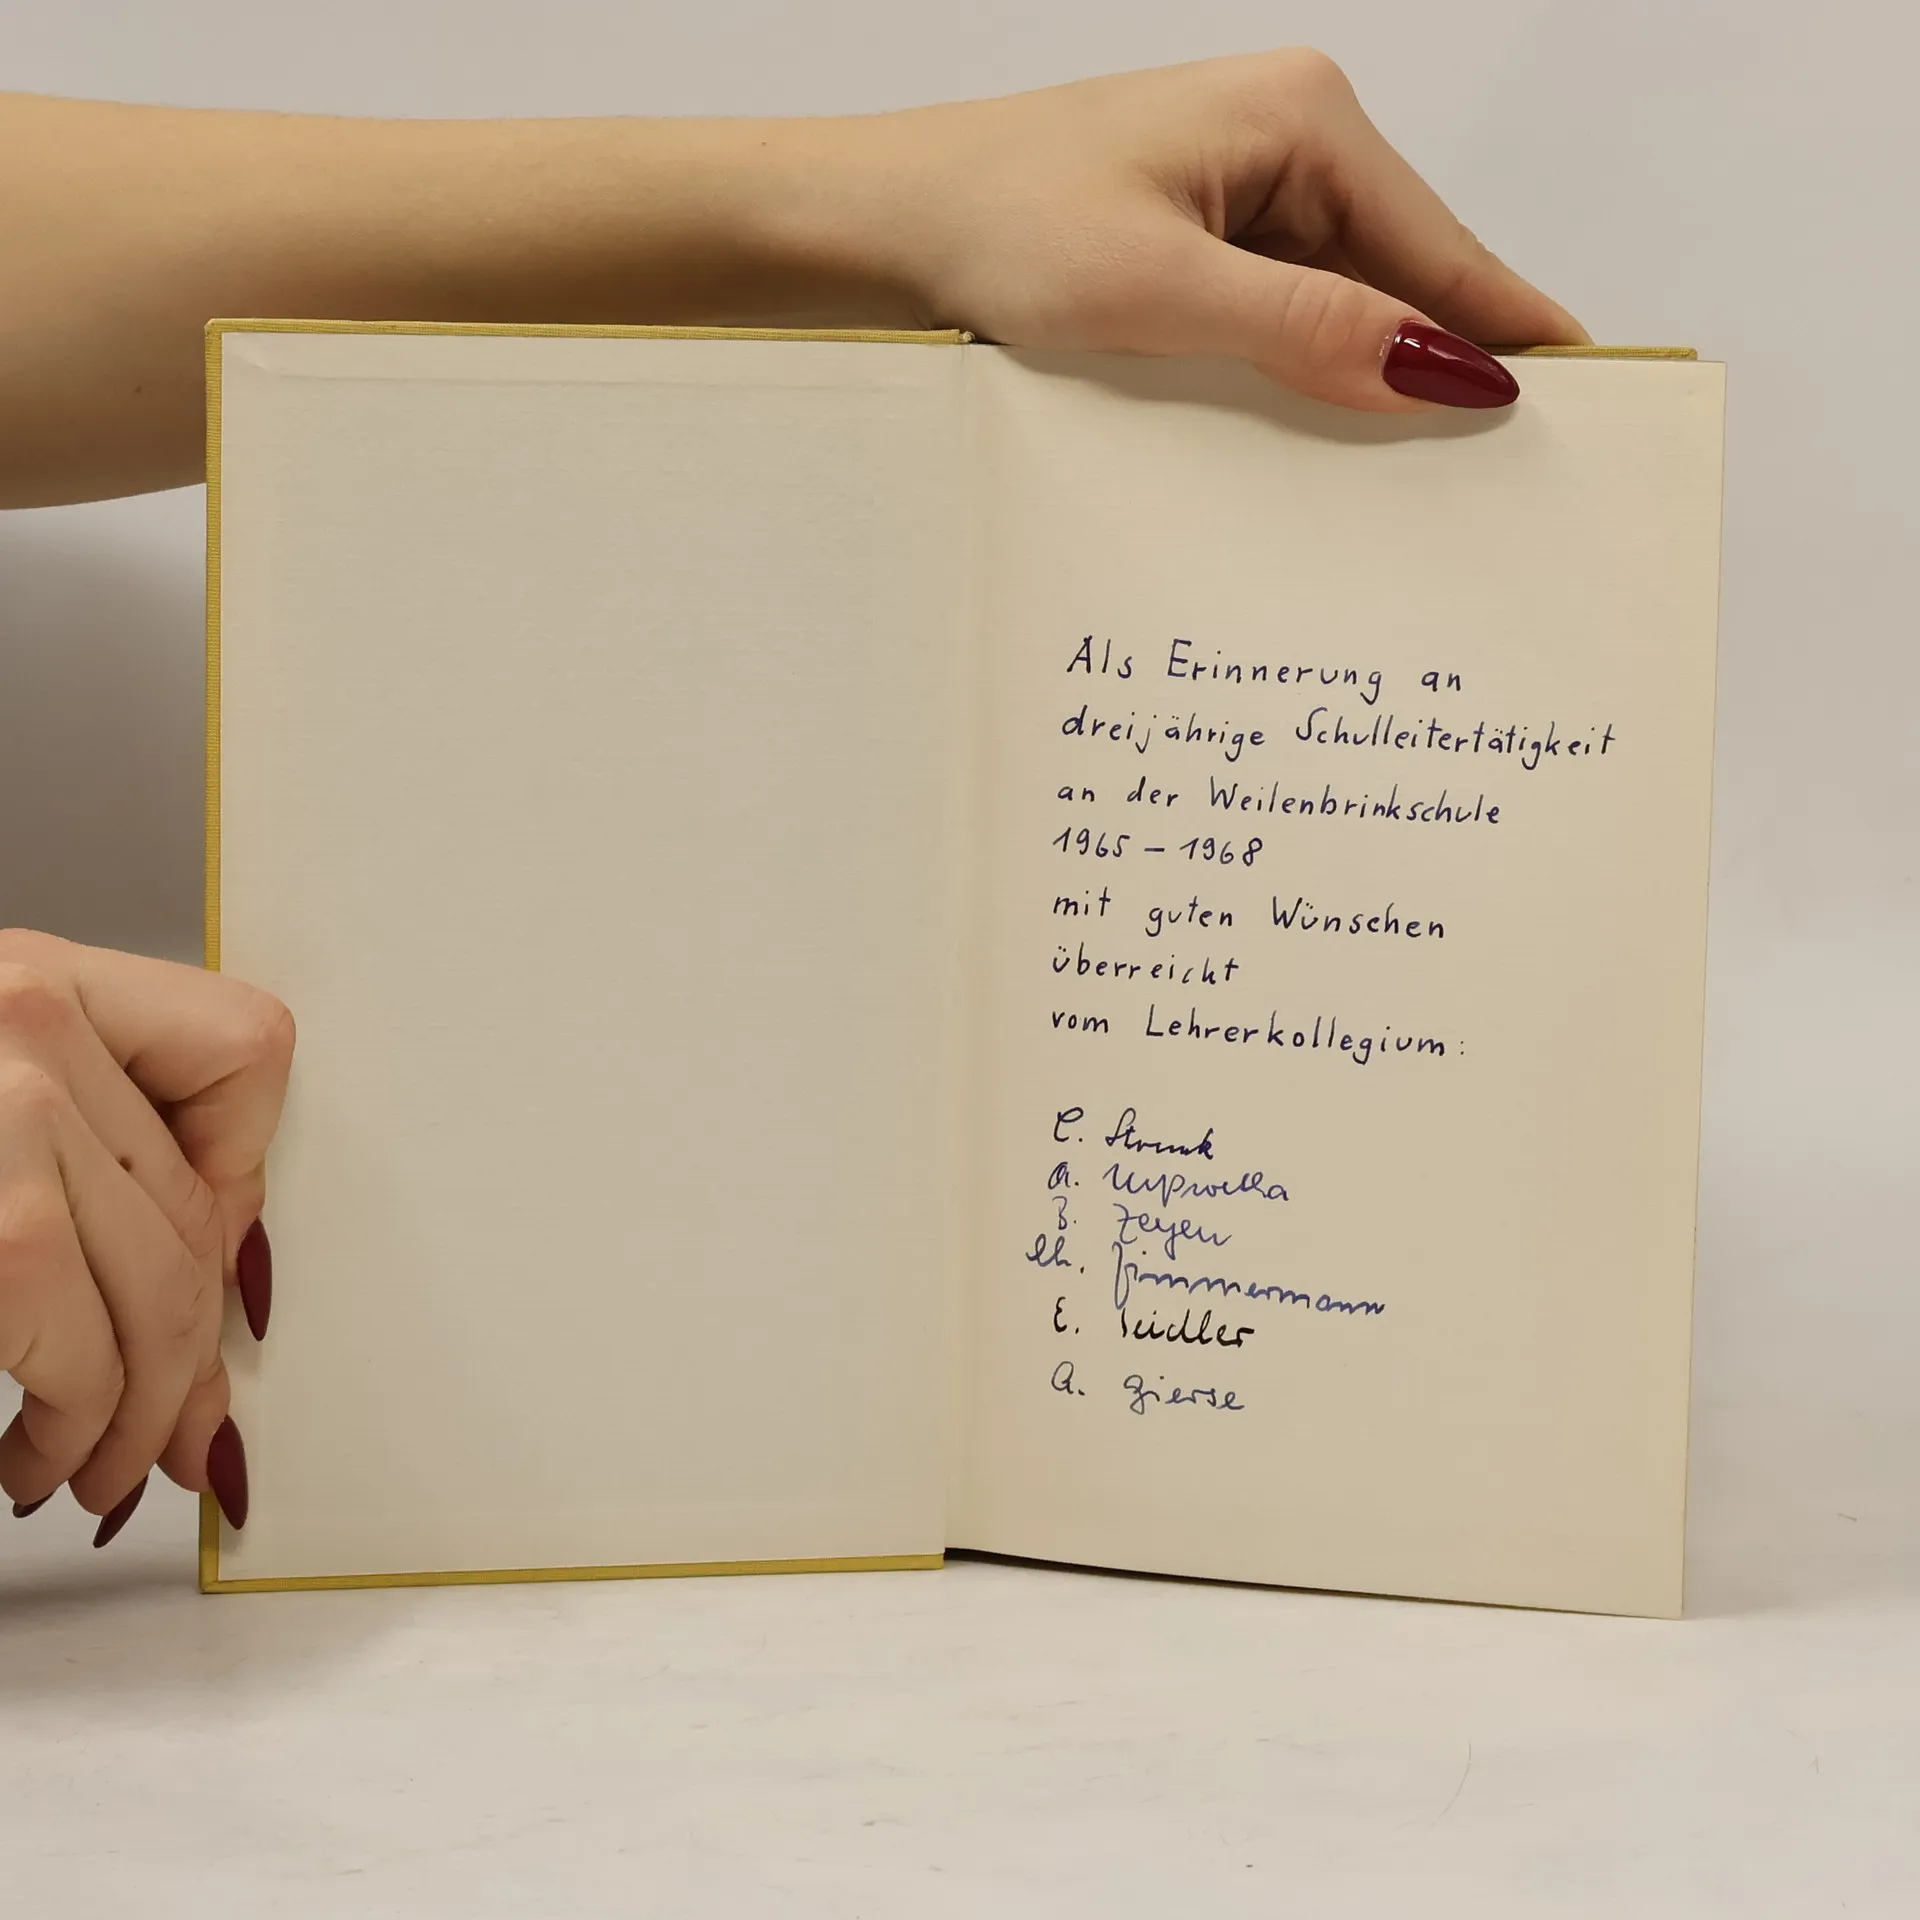 Als Erinnerung an
dreijährige Schulleitertätigkeit
an der Weilenbrinkschule
1965 – 1968
mit guten Wünschen
überreicht
vom Lehrerkollegium:
C. Strunk
A.
B. Zeyen
Zimmermann
E. Seidler
A. Gierse